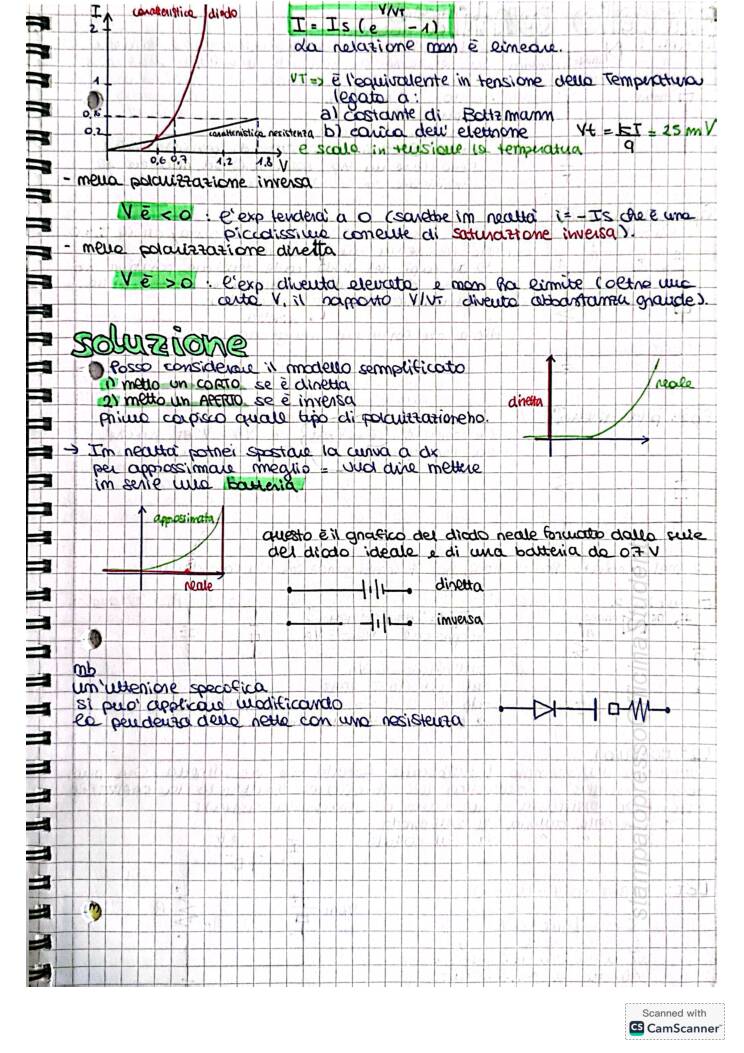 I caratteristica diodo
2
1
0,6
0,2
caratteristica resistenza
0,6 0,7 1,2 1,8 V
I = Is (e^V/VT -1)
La relazione non è lineare.
VT => è l'equivalente in tensione della Temperatura
legato a:
a) costante di Boltzmann
b) carica dell' elettrone Vt = kT/q = 25 mV
e scala in tensione la temperatura
- nella polarizzazione inversa
V è < 0 : l'exp tenderà a 0 (sarebbe in realtà i = - Is che è una
piccolissima corrente di saturazione inversa).
- nella polarizzazione diretta
V è > 0 : l'exp diventa elevata e non ha limite (oltre una
certa V, il rapporto V/VT diventa abbastanza grande).
soluzione
Posso considerare il modello semplificato
1) metto un CORTO se è diretta
2) metto un APERTO se è inversa
prima capisco quale tipo di polarizzazione ho.
diretta reale
→ In realtà potrei spostare la curva a dx
per approssimare meglio = vuol dire mettere
in serie una batteria.
approssimata
reale
questo è il grafico del diodo reale formato dalla serie
del diodo ideale e di una batteria da 0.7 V
diretta
inversa
nb
un'ulteriore specifica
si può applicare modificando
la pendenza della retta con una resistenza
Scanned with
CS CamScanner